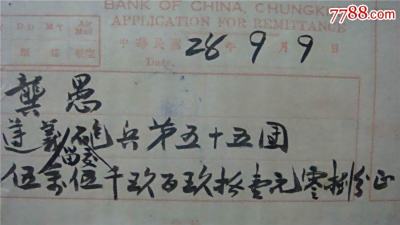 7788.com
BANK OF CHINA, CHUNGK
APPLICATION FOR REMITTANCE
D.D. M.T. Air Mail
中華民國 28 年 9 月 9 日
Date
龔愚
遵義砲兵第五十五團
苗交
伍萬伍千玖百玖拾壹元零捌分正